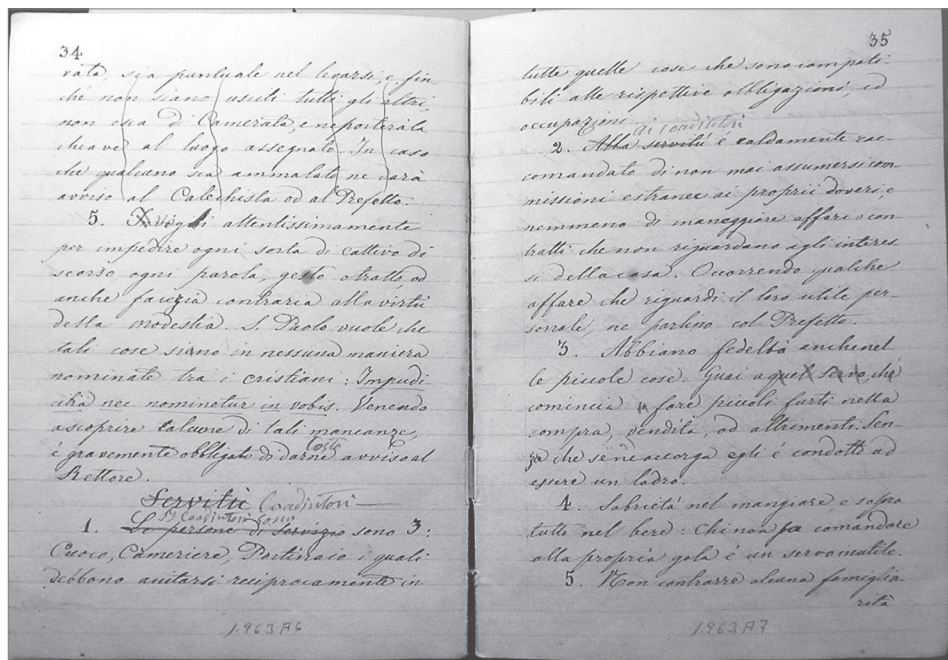 34
rata, sia puntuale nel levarsi, e, fin
ché non siano usciti tutti gli altri,
non esca di Camerata, e ne porterà la
chiave al luogo assegnato. In caso
che qualcuno sia ammalato ne darà
avviso al Catechista od al Prefetto.
5. Vegli attentissimamente
per impedire ogni sorta di cattivo di
scorso ogni parola, gesto o tratto, od
anche facezia contraria alla virtù
della modestia. S. Paolo vuole che
tali cose siano in nessuna maniera
nominate tra i cristiani: Impudi
citia nec nominetur in vobis. Venendo
a scoprire talune di tali mancanze,
tosto
è gravemente obbligato di darne avviso al
Rettore.
Servitù Coadiutori
I Coadiutori sono
1. Le persone di servizio sono 3:
Cuoco, Cameriere, Portinaio i quali
debbono aiutarsi reciprocamente in
1.963 A6
35
tutte quelle cose che sono compati
bili alle rispettive obbligazioni, ed
occupazioni.
ai coadiutori
2. Alla servitù è caldamente rac
comandato di non mai assumersi com
missioni estranee ai proprii doveri, e
nemmeno di maneggiare affari o con
tratti che non riguardano agli interes
si della casa. Occorrendo qualche
affare che riguardi il loro utile per
sonale, ne parlino col Prefetto.
3. Abbiano fedeltà anche nel
le piccole cose. Guai a quel servo, che
comincia a fare piccoli furti nella
compra, vendita, od altrimenti. Sen
za che se ne accorga egli è condotto ad
essere un ladro.
4. Sobrietà nel mangiare, e sopra
tutto nel bere: Chi non sa comandare
alla propria gola è un servo inutile.
5. Non contrarre alcuna famiglia
rità
1.963 A7